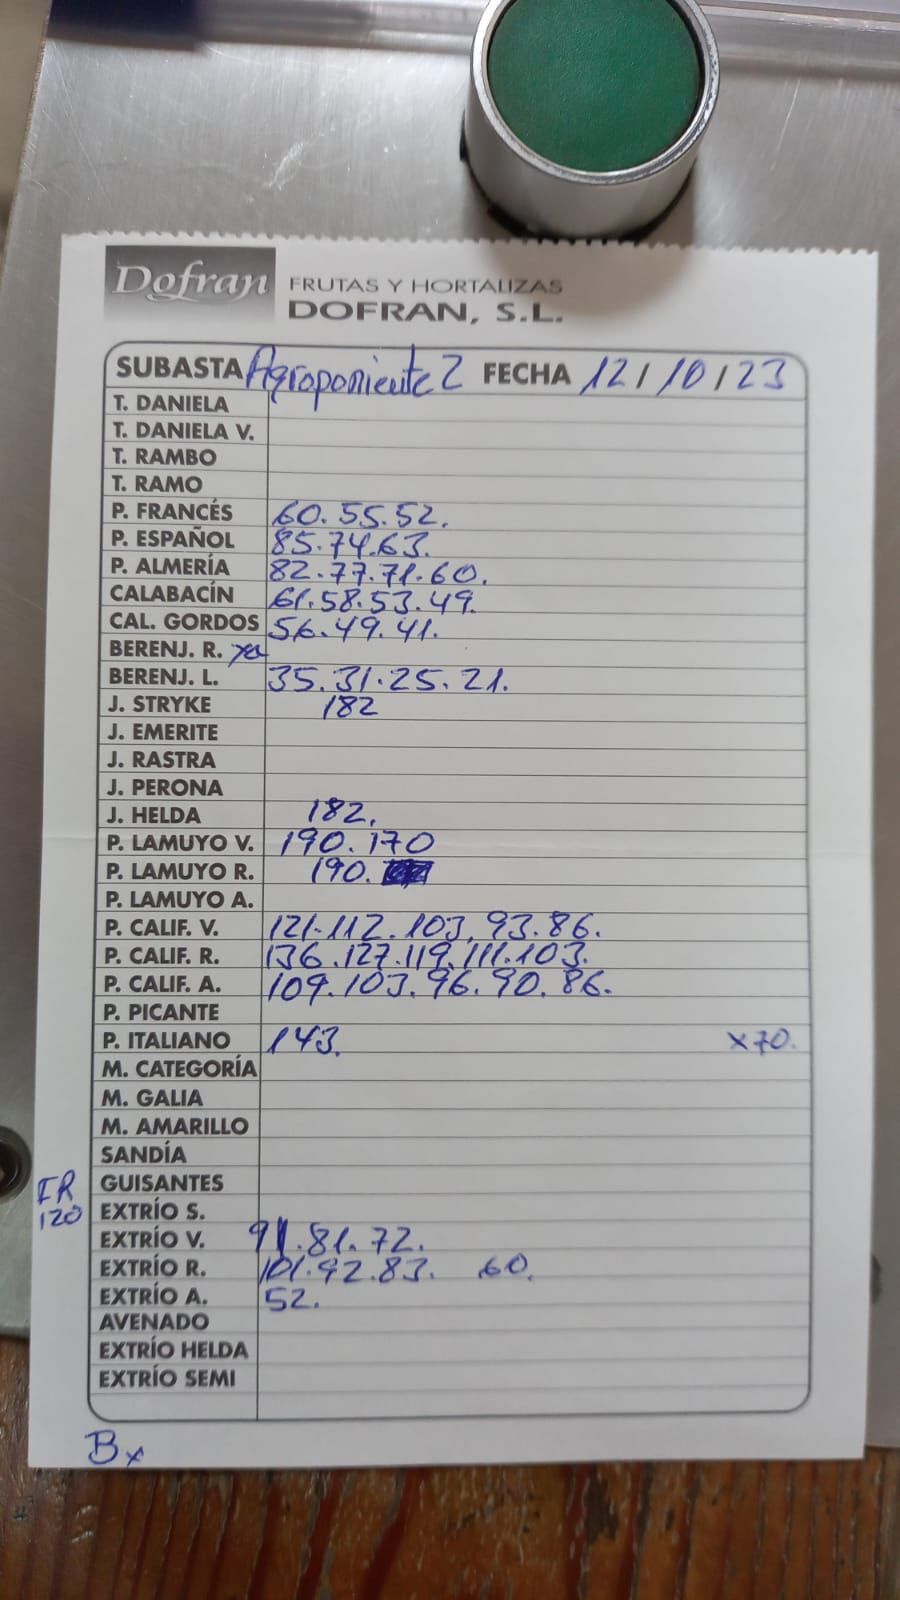 Dofran FRUTAS Y HORTALIZAS
DOFRAN, S.L.
SUBASTA Agroponiente 2 FECHA 12/10/23
T. DANIELA
T. DANIELA V.
T. RAMBO
T. RAMO
P. FRANCÉS 60.55.52.
P. ESPAÑOL 85.74.63.
P. ALMERÍA 82.77.71.60.
CALABACÍN 61.58.53.49.
CAL. GORDOS 56.49.41.
BERENJ. R.
BERENJ. L. 35.31.25.21.
J. STRYKE 182
J. EMERITE
J. RASTRA
J. PERONA
J. HELDA 182.
P. LAMUYO V. 190.170
P. LAMUYO R. 190.
P. LAMUYO A.
P. CALIF. V. 121.112.103.93.86.
P. CALIF. R. 136.127.119.111.103.
P. CALIF. A. 109.103.96.90.86.
P. PICANTE
P. ITALIANO 143. x70.
M. CATEGORÍA
M. GALIA
M. AMARILLO
SANDÍA
FR GUISANTES
120 EXTRÍO S.
EXTRÍO V. 91.81.72.
EXTRÍO R. 101.92.83. 60.
EXTRÍO A. 52.
AVENADO
EXTRÍO HELDA
EXTRÍO SEMI
Bx